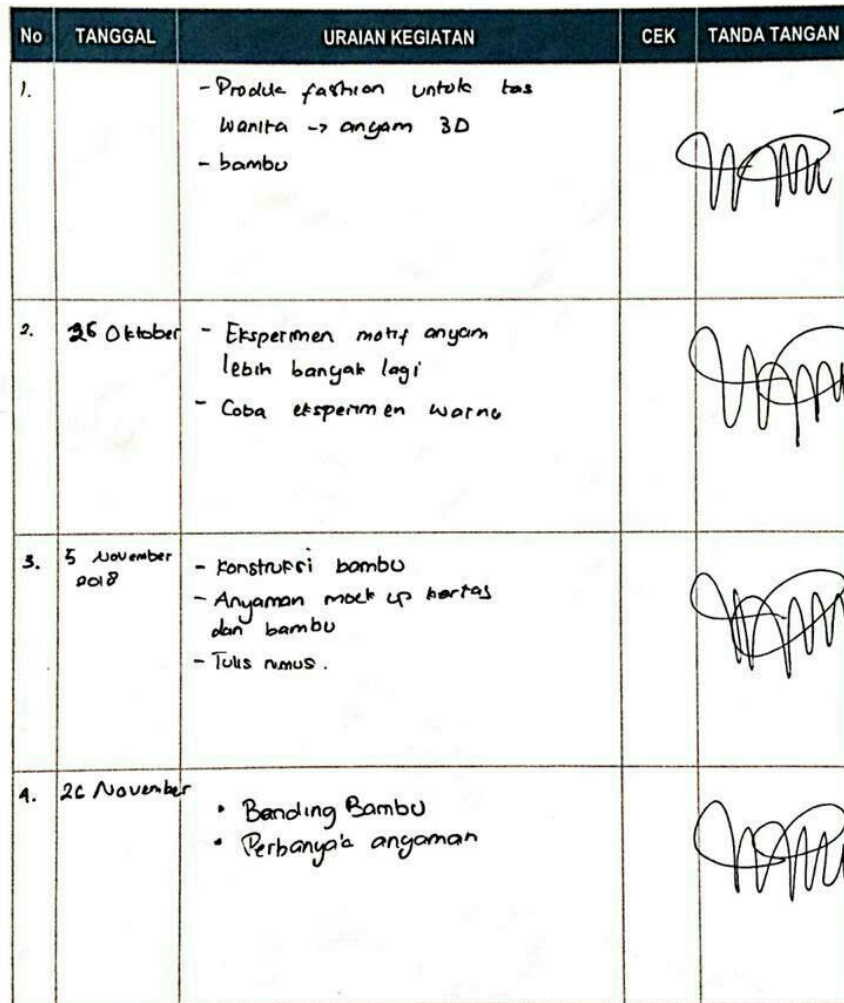 No TANGGAL URAIAN KEGIATAN CEK TANDA TANGAN
1. - Produk fashion untuk tas
wanita -> anyam 3D
- bambu
2. 26 Oktober - Eksperimen motif anyam
lebih banyak lagi
- Coba eksperimen warna
3. 5 November - Konstruksi bambu
2018
- Anyaman mock up kertas
dan bambu
- Tulis rumus.
4. 26 November
• Banding Bambu
• Perbanyak anyaman